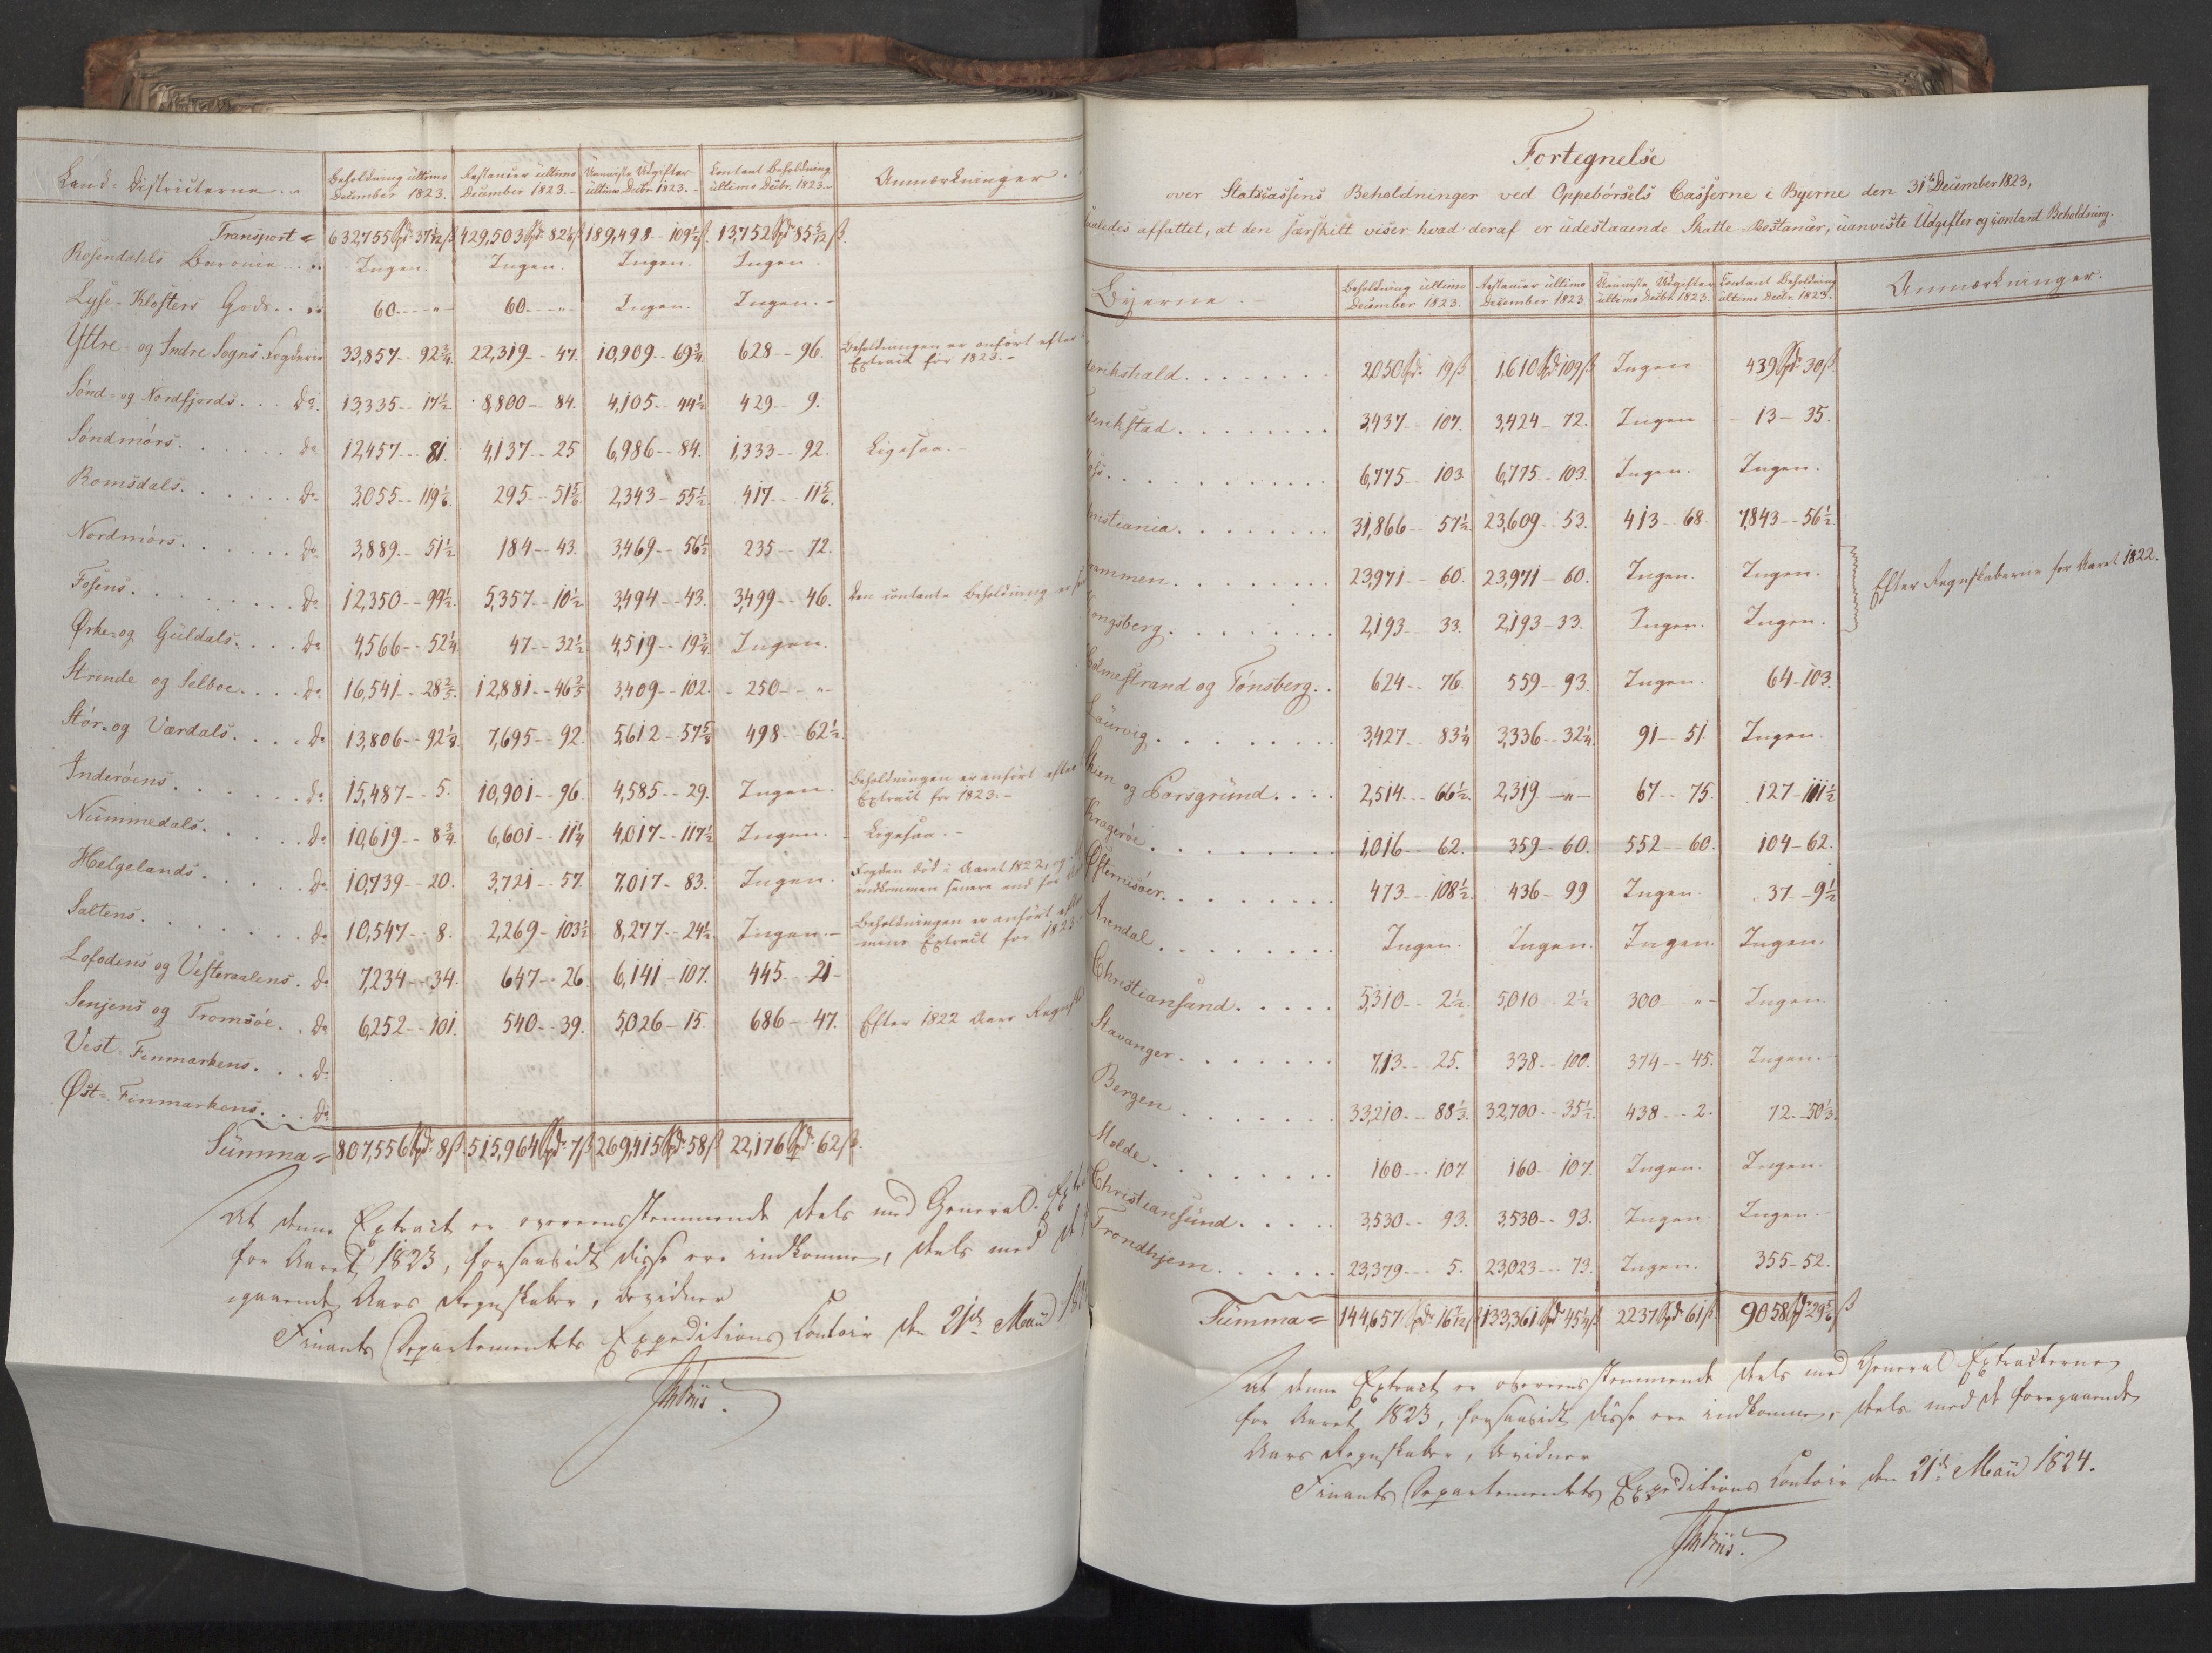 Land-Districterne
Beholdning ultimo December 1823.
Restancer ultimo December 1823.
Uanviste Udgifter ultimo Decbr. 1823.
Contant Beholdning ultimo Decbr. 1823.
Anmærkninger.
Transport = 632,755 Spd 37 1/12 ß 429,503 Spd 82 1/6 ß 189,498 - 109 1/2 ß 13,752 Spd 85 5/12 ß.
Rosendahls Baronie Ingen. Ingen. Ingen. Ingen.
Lyse-Klosters Gods 60 - " - 60 - " - Ingen. Ingen. -
Yttre- og Indre Sogns Fogderie 33,857 - 92 3/4. 22,319 - 47. 10,909 - 69 3/4. 628 - 96. Beholdningen er anført efter
Extract for 1823. -
Sönd- og Nordfjords. . . Do. 13,335 - 17 1/2 8,800 - 84. 4,105 - 44 1/2 429 - 9.
Söndmörs. . . . . . do 12,457 - 81. 4,137 - 25 6,986 - 84. 1,333 - 92. Ligesaa. -
Romsdals. . . . . . do 3,055 - 119 1/6. 295 - 51 5/6. 2,343 - 55 1/2 417 - 11 5/6.
Nordmörs. . . . . . do 3,889 - 51 1/2 184 - 43. 3,469 - 56 1/2 235 - 72.
Fosens. . . . . . . . do 12,350 - 99 1/2. 5,357 - 10 1/2 3,494 - 43. 3,499 - 46. Den contante Beholdning er
Ørke- og Guldals. . . . do 4,566 - 52 1/4 47 - 32 1/2 4,519 - 19 3/4 Ingen.
Strinde og Selboe. . . . do 16,541 - 28 2/5. 12,881 - 46 2/5 3,409 - 102. 250 - " -
Stör- og Værdals. . . . do 13,806 - 92 1/8. 7,695 - 92. 5,612 - 57 5/8 498 - 62 1/2.
Inderöens. . . . . . . do 15,487 - 5. 10,901 - 96. 4,585 - 29. Ingen. Beholdningen er anført efter
Extract for 1823. -
Nummedals. . . . . . do 10,619 - 8 3/4. 6,601 - 11 1/4 4,017 - 117 1/2 Ingen. - Ligesaa. -
Helgelands. . . . . . do 10,739 - 20. 3,721 - 57. 7,017 - 83. Ingen. Fogden död i Aaret 1822, og
indkommen senere end for
Saltens. . . . . . . . do 10,547 - 8. 2,269 - 103 1/2 8,277 - 24 1/2. Ingen. - Beholdningen er anført efter
Extract for 1823.
Lofodens og Vesteraalens. do 7,234 - 34. 647 - 26. 6,141 - 107. 445 - 21 -
Senjens og Tromsöe. . do 6,252 - 101. 540 - 39. 5,026 - 15. 686 - 47. Efter 1822 Aars
Vest-Finmarkens. . . do
Øst-Finmarkens. . . do
Summa = 807,556 Spd 8 ß. 515,964 Spd 7 ß 269,415 Spd 58 ß 22,176 Spd 62 ß.
At denne Extract er overeensstemmende deels med General-
for Aaret 1823, forsaavidt disse ere indkomne, deels med de
gaaende Aars Regnskaber, bevidner
Finants Departementets Expeditions Contoir den 21de Maii
Fortegnelse
over Statscassens Beholdninger ved Oppebörsels Casserne i Byerne den 31te December 1823,
saaledes affattet, at den særskilt viser hvad deraf er udestaaende Skatte-Restancer, uanviste Udgifter og contant Beholdning.
Byerne. -
Beholdning ultimo December 1823.
Restancer ultimo December 1823
Uanviste Udgifter ultimo Decbr. 1823.
Contant Beholdning ultimo Decbr. 1823.
Anmærkninger.
derikshald. . . . . . . . 2,050 Spd 19 ß 1,610 Spd 109 ß Ingen 439 Spd 30 ß.
derikstad. . . . . . . . 3,437 - 107. 3,424 - 72. Ingen 13 - 35.
oss. . . . . . . . . . . 6,775 - 103 6,775 - 103. Ingen. Ingen.
ristiania. . . . . . . . 31,866 - 57 1/2 23,609 - 53. 413 - 68. 7,843 - 56 1/2.
rammen. . . . . . . . 23,971 - 60. 23,971 - 60. Ingen. Ingen.
Efter Regnskaberne for Aaret 1822.
Kongsberg. . . . . . . 2,193 - 33. 2,193 - 33. Ingen. Ingen.
Holmestrand og Tönsberg. . 624 - 76. 559 - 93. Ingen. 64 - 103.
Laurvig. . . . . . . . 3,427 - 83 1/4 3,336 - 32 1/4. 91 - 51. Ingen.
Skien og Porsgrund. . . . 2,514 - 66 1/2. 2,319 - " - 67 - 75. 127 - 111 1/2
Kragerøe. . . . . . . . 1,016 - 62. 359 - 60. 552 - 60. 104 - 62.
Østerrisöer. . . . . . . . 473 - 108 1/2. 436 - 99 Ingen. 37 - 9 1/2
Arendal. . . . . . . . Ingen. Ingen. Ingen. Ingen.
Christiansand. . . . . 5,310 - 2 1/2. 5,010 - 2 1/2 300 - " - Ingen.
Stavanger. . . . . . . 713 - 25. 338 - 100. 374 - 45. Ingen. -
Bergen. . . . . . . 33,210 - 88 1/3. 32,700 - 35 1/2. 438 - 2. 72 - 50 1/3.
Molde. . . . . . . . 160 - 107. 160 - 107. Ingen. Ingen.
Christiansund. . . . . 3,530 - 93. 3,530 - 93. Ingen. Ingen. -
Trondhjem. . . . . . 23,379 - 5. 23,023 - 73. Ingen. 355 - 52.
Summa = 144,657 Spd 16 7/12 ß 133,361 Spd 45 1/4 ß 2237 Spd 61 ß 9058 Spd 29 5/6 ß
At denne Extract er overeensstemmende deels med General Extracterne
for Aaret 1823, forsaavidt disse ere indkomne, deels med de foregaaende
Aars Regnskaber, bevidner
Finants Departementets Expeditions Contoir den 21de Maii 1824.